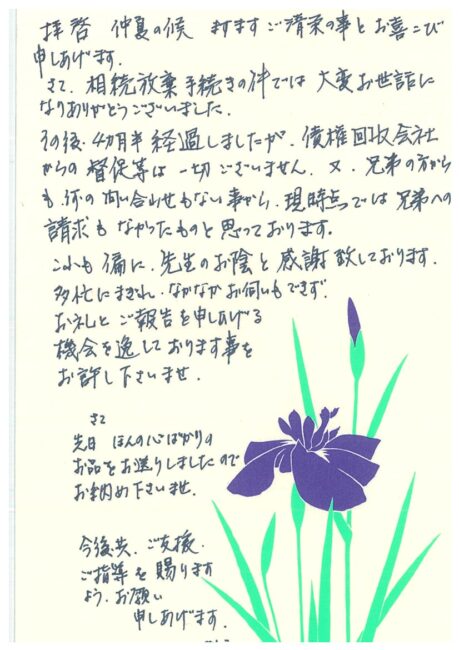 拝啓 仲夏の候 ますますご清栄の事とお喜こび
申しあげます.
さて、相続放棄手続きの件では大変お世話に
なりありがとうございました.
その後、4カ月半経過しましたが、債権回収会社
からの督促等は一切ございません。又、兄弟の方から
も、何の問い合わせもない事から、現時点では兄弟への
請求もなかったものと思っております.
これも偏に、先生のお陰と感謝致しております.
多忙にまぎれ、なかなかお伺いもできず.
お礼とご報告を申しあげる
機会を逸しております事を
お許し下さいませ.
さて
先日 ほんの心ばかりの
お品をお送りしましたので
お納め下さいませ.
今後共、ご支援、
ご指導を賜ります
よう、お願い
申しあげます.